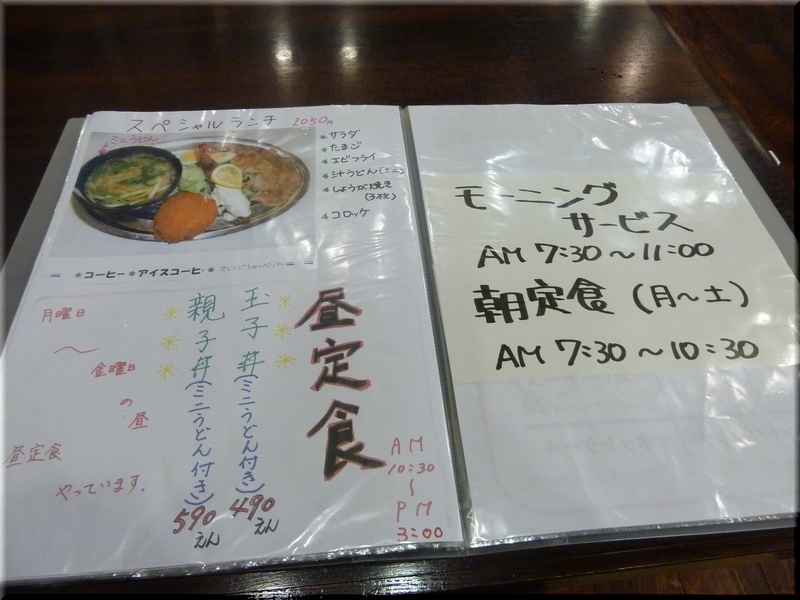 スペシャルランチ 1050円
ミニうどん
* サラダ
* たまご
* エビフライ
* 汁うどん(ミニ)
* しょうが焼き
(3枚)
* コロッケ
*コーヒー*アイスコーヒー*オレンジシャーベット
昼定食
AM
10:30
〜
PM
3:00
玉子丼(ミニうどん付き)490えん
親子丼(ミニうどん付き)590えん
月曜日
〜
金曜日
の
昼
昼定食
やっています。
モーニング
サービス
AM 7:30〜11:00
朝定食(月〜土)
AM 7:30〜10:30